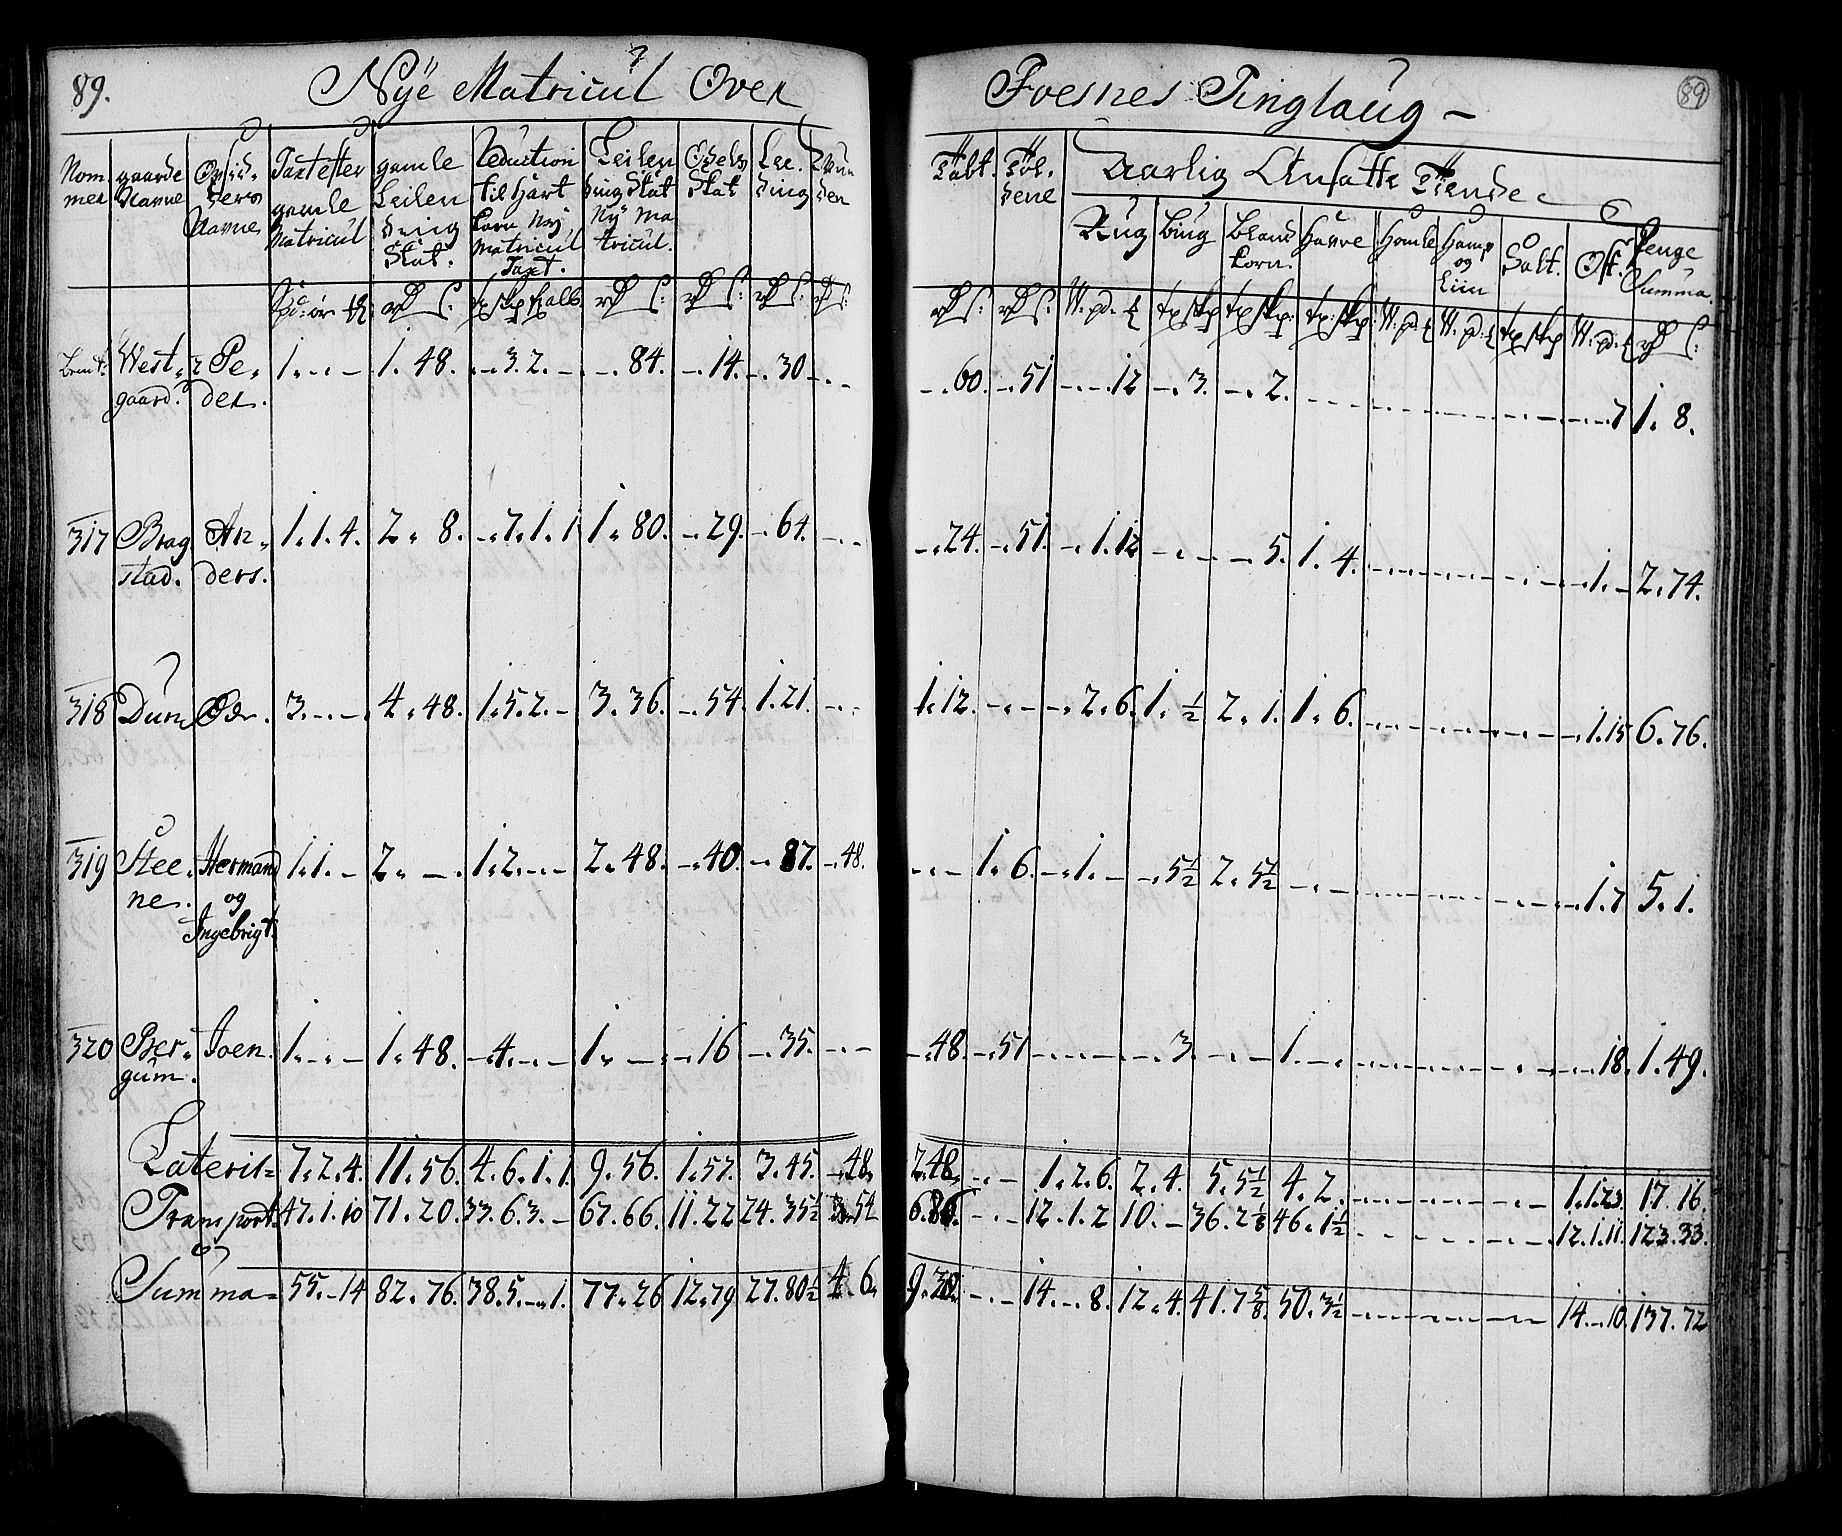 89. Nÿe Matricul Over Foesnes Tinglaug — 89
Nom mer | gaarde Navne | Opsid- ders Navne | Taxt efter gamle Matricul | gamle Leilen ding Skat. | Reduction til Hart korn Nÿ Matricul Taxt. | Leilen ding Skat Nÿ Ma tricul. | Odels Skat | Lee- ding | | | | Aarlig Ansatte Tiende
Rug | Biug | Bland korn. | Havre | Homle | Hamp og Liin | Salt. | Ost. | Penge Summa.
West- gaard. Pe- der. 1. - . - 1. 48. - . 3. 2. - - . 84. - . 14. - . 30 - . - - . 60. - . 51 - . - . 12 - . 3. - . 2. - . - . 7 1. 8.
317 Brag stad. An- ders. 1. 1. 4. 2. 8. - . 7. 1. 1 1. 80. - . 29. - . 64. - . - - . 24. - . 51. - . 1. 12 - . - - . 5. 1. 4. - . 1. - 2. 74.
318 Duun Odr. 3. - . - 4. 48. 1. 5. 2. - 3. 36. - . 54. 1. 21. - . - 1. 12. - . - - . 2. 6. 1. ½ 2. 1. 1. 6. - . 1. 15 6. 76.
319 Stee- nes. Hermand og Ingebrigt. 1. 1. - 2. - . 1. 2. - . - 2. 48. - . 40. - . 87. - . 48. - . - 1. 6. - . 1. - - . 5½ 2. 5½ - . - - . 1. 7 5. 1.
320 Ber- gum. Joen. 1. - . - 1. 48. - . 4. - . - 1. - - . 16 - . 35. - . - - . 48. - . 51 - . - . - - . 3. - . - 1. - - . - . 18. 1. 49.
Lateris = 7. 2. 4. 11. 56. 4. 6. 1. 1. 9. 56. 1. 57. 3. 45. - . 48. 2. 48. - . - 1. 2. 6. 2. 4. 5. 5½ 4. 2. 1. 1. 23. 17. 16.
Transport. 47. 1. 10 71. 20. 33. 6. 3. - 67. 66. 11. 22 24. 35½ 3. 54 6. 86. - . - 12. 1. 2 10. - 36. 2⅛ 46. 1½ 12. 1. 11. 123. 33.
Summa = 55. - 14 82. 76. 38. 5. - . 1. 77. 26 12. 79 27. 80½ 4. 6. 9. 38. - . - 14. - . 8. 12. 4. 41. 7⅝ 50. 3½ 14. - . 10. 137. 72